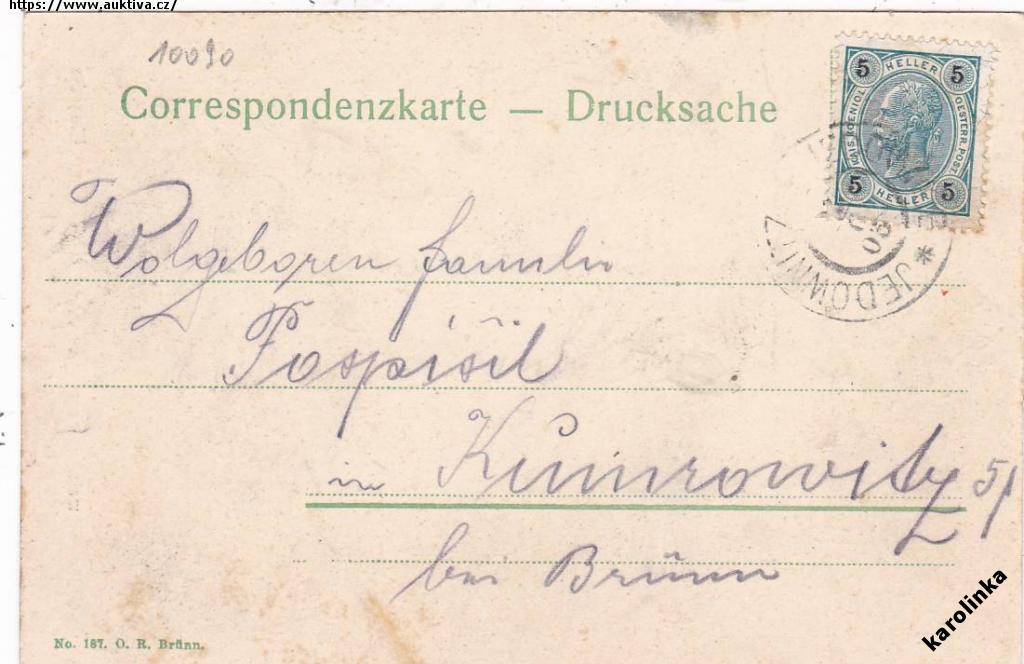 https://www.auktiva.cz/
10090
Correspondenzkarte — Drucksache
5 HELLER 5
KAIS. KOENIGL. OESTERR. POST
5 HELLER 5
* JEDOWNITZ
Wolgeboren Familie
Pospíšil
in Kumrowitz 51
bei Brünn
No. 187. O. R. Brünn.
karolinka